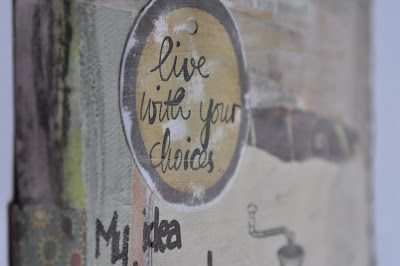 live
with your
choices.
My idea